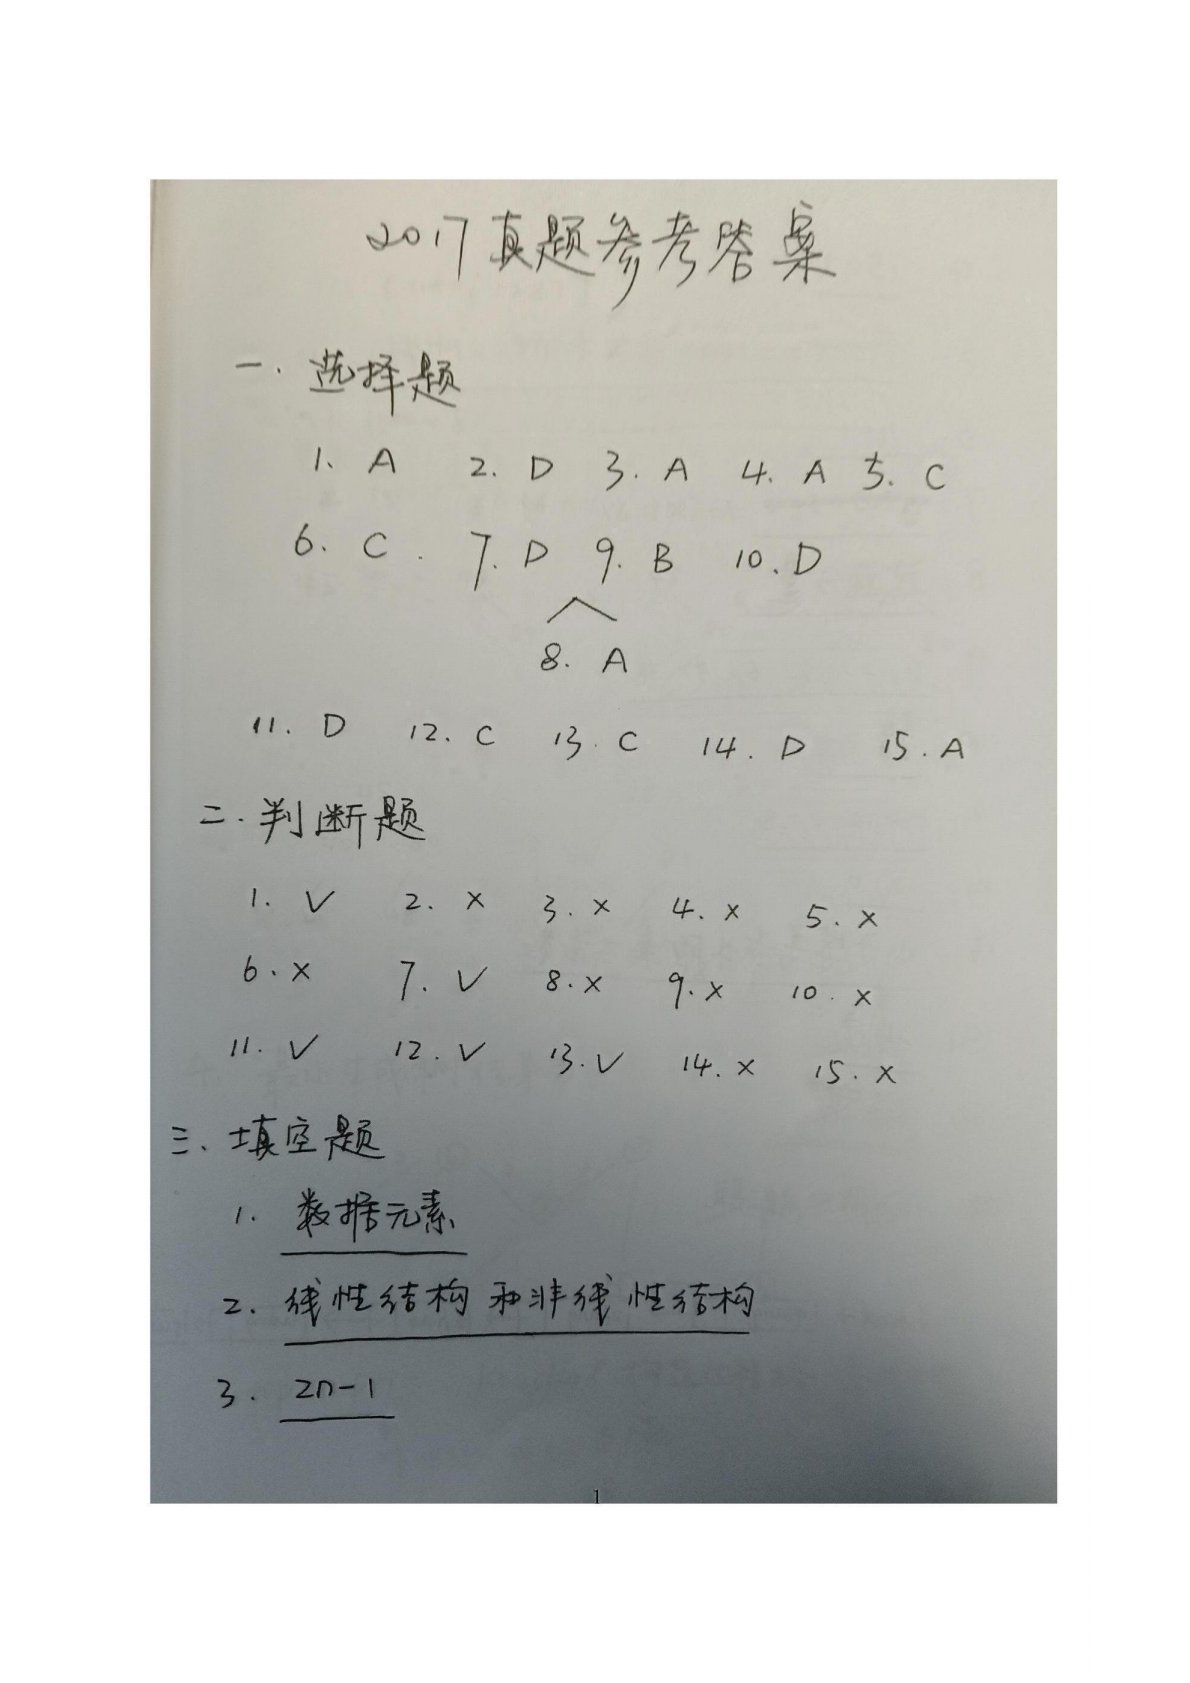 2017真题参考答案
一. 选择题
1. A 2. D 3. A 4. A 5. C
6. C. 7. D 9. B 10. D
8. A
11. D 12. C 13. C 14. D 15. A
二. 判断题
1. √ 2. × 3. × 4. × 5. ×
6. × 7. √ 8. × 9. × 10. ×
11. √ 12. √ 13. √ 14. × 15. ×
三、填空题
1. 数据元素
2. 线性结构和非线性结构
3. 2n-1
1